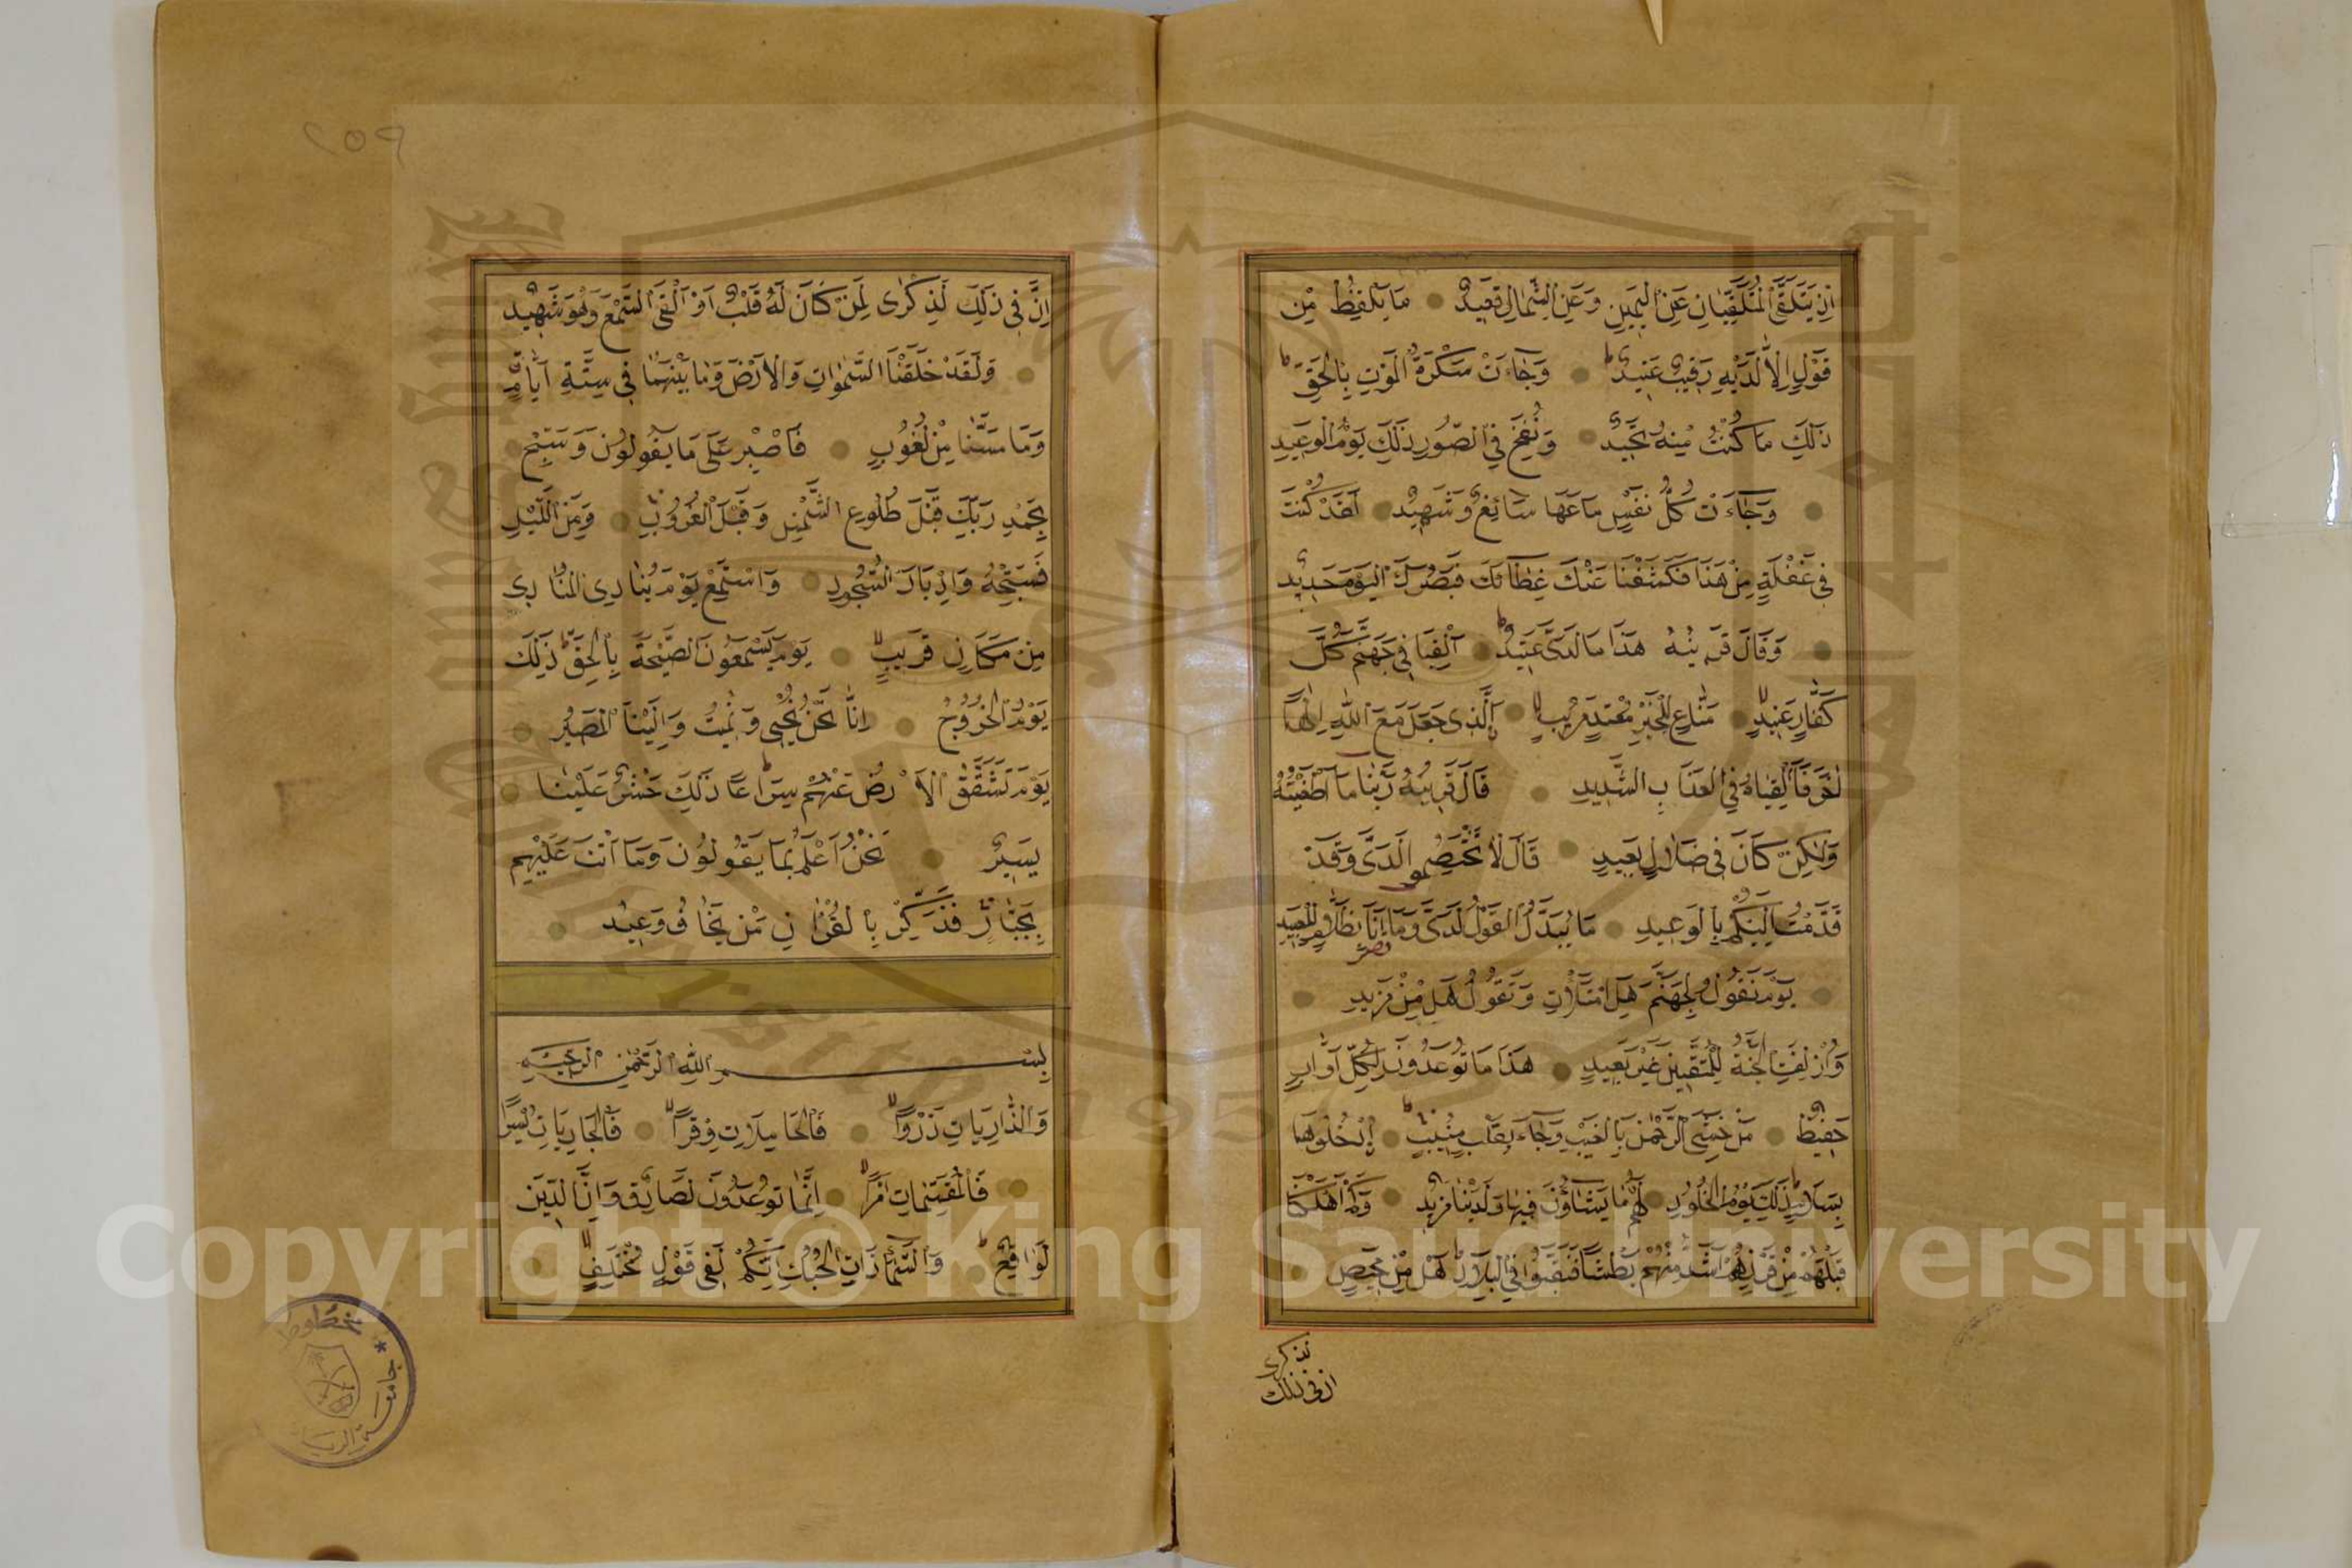 اِذْ يَتَلَقَّى الْمُتَلَقِّيَانِ عَنِ الْيَمِينِ وَعَنِ الشِّمَالِ قَعِيدٌ مَا يَلْفِظُ مِنْ
قَوْلٍ اِلَّا لَدَيْهِ رَقِيبٌ عَتِيدٌ وَجَاءَتْ سَكْرَةُ الْمَوْتِ بِالْحَقِّ
ذَلِكَ مَا كُنْتَ مِنْهُ تَحِيدُ وَنُفِخَ فِي الصُّورِ ذَلِكَ يَوْمُ الْوَعِيدِ
وَجَاءَتْ كُلُّ نَفْسٍ مَعَهَا سَائِقٌ وَشَهِيدٌ لَقَدْ كُنْتَ
فِي غَفْلَةٍ مِنْ هَذَا فَكَشَفْنَا عَنْكَ غِطَاءَكَ فَبَصَرُكَ الْيَوْمَ حَدِيدٌ
وَقَالَ قَرِينُهُ هَذَا مَا لَدَىَّ عَتِيدٌ اَلْقِيَا فِي جَهَنَّمَ كُلَّ
كَفَّارٍ عَنِيدٍ مَنَّاعٍ لِلْخَيْرِ مُعْتَدٍ مُرِيبٍ اَلَّذِى جَعَلَ مَعَ اللّٰهِ اِلٰهًا
اٰخَرَ فَاَلْقِيَاهُ فِي الْعَذَابِ الشَّدِيدِ قَالَ قَرِينُهُ رَبَّنَا مَا اَطْغَيْتُهُ
وَلٰكِنْ كَانَ فِي ضَلَالٍ بَعِيدٍ قَالَ لَا تَخْتَصِمُوا لَدَىَّ وَقَدْ
قَدَّمْتُ اِلَيْكُمْ بِالْوَعِيدِ مَا يُبَدَّلُ الْقَوْلُ لَدَىَّ وَمَا اَنَا بِظَلَّامٍ لِلْعَبِيدِ
يَوْمَ نَقُولُ لِجَهَنَّمَ هَلِ امْتَلَأْتِ وَتَقُولُ هَلْ مِنْ مَزِيدٍ
وَاُزْلِفَتِ الْجَنَّةُ لِلْمُتَّقِينَ غَيْرَ بَعِيدٍ هَذَا مَا تُوعَدُونَ لِكُلِّ اَوَّابٍ
حَفِيظٍ مَنْ خَشِىَ الرَّحْمٰنَ بِالْغَيْبِ وَجَاءَ بِقَلْبٍ مُنِيبٍ اُدْخُلُوهَا
بِسَلَامٍ ذَلِكَ يَوْمُ الْخُلُودِ لَهُمْ مَا يَشَاؤُنَ فِيهَا وَلَدَيْنَا مَزِيدٌ وَكَمْ اَهْلَكْنَا
قَبْلَهُمْ مِنْ قَرْنٍ هُمْ اَشَدُّ مِنْهُمْ بَطْشًا فَنَقَّبُوا فِي الْبِلَادِ هَلْ مِنْ مَحِيصٍ
ان فى ذلك
٢٥٩
اِنَّ فِي ذَلِكَ لَذِكْرٰى لِمَنْ كَانَ لَهُ قَلْبٌ اَوْ اَلْقَى السَّمْعَ وَهُوَ شَهِيدٌ
وَلَقَدْ خَلَقْنَا السَّمٰوَاتِ وَالْاَرْضَ وَمَا بَيْنَهُمَا فِي سِتَّةِ اَيَّامٍ
وَمَا مَسَّنَا مِنْ لُغُوبٍ فَاصْبِرْ عَلَى مَا يَقُولُونَ وَسَبِّحْ
بِحَمْدِ رَبِّكَ قَبْلَ طُلُوعِ الشَّمْسِ وَقَبْلَ الْغُرُوبِ وَمِنَ اللَّيْلِ
فَسَبِّحْهُ وَاَدْبَارَ السُّجُودِ وَاسْتَمِعْ يَوْمَ يُنَادِى الْمُنَادِى
مِنْ مَكَانٍ قَرِيبٍ يَوْمَ يَسْمَعُونَ الصَّيْحَةَ بِالْحَقِّ ذَلِكَ
يَوْمُ الْخُرُوجِ اِنَّا نَحْنُ نُحْيِى وَنُمِيتُ وَاِلَيْنَا الْمَصِيرُ
يَوْمَ تَشَقَّقُ الْاَرْضُ عَنْهُمْ سِرَاعًا ذَلِكَ حَشْرٌ عَلَيْنَا
يَسِيرٌ نَحْنُ اَعْلَمُ بِمَا يَقُولُونَ وَمَا اَنْتَ عَلَيْهِمْ
بِجَبَّارٍ فَذَكِّرْ بِالْقُرْاٰنِ مَنْ يَخَافُ وَعِيدِ
بِسْمِ اللّٰهِ الرَّحْمٰنِ الرَّحِيمِ
وَالذَّارِيَاتِ ذَرْوًا فَالْحَامِلَاتِ وِقْرًا فَالْجَارِيَاتِ يُسْرًا
فَالْمُقَسِّمَاتِ اَمْرًا اِنَّمَا تُوعَدُونَ لَصَادِقٌ وَاِنَّ الدِّينَ
لَوَاقِعٌ وَالسَّمَاءِ ذَاتِ الْحُبُكِ اِنَّكُمْ لَفِى قَوْلٍ مُخْتَلِفٍ
Copyright © King Saud University